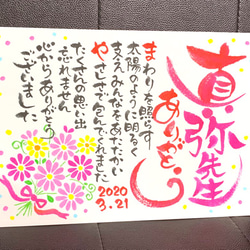 直・弥先生
ありがとう
まわりを照らす
太陽のように明るく
まえみんなをあたたかい
やさしさで包んでくれました
たくさんの思い出
忘れません
心からありがとう
ございました
2020
3.21